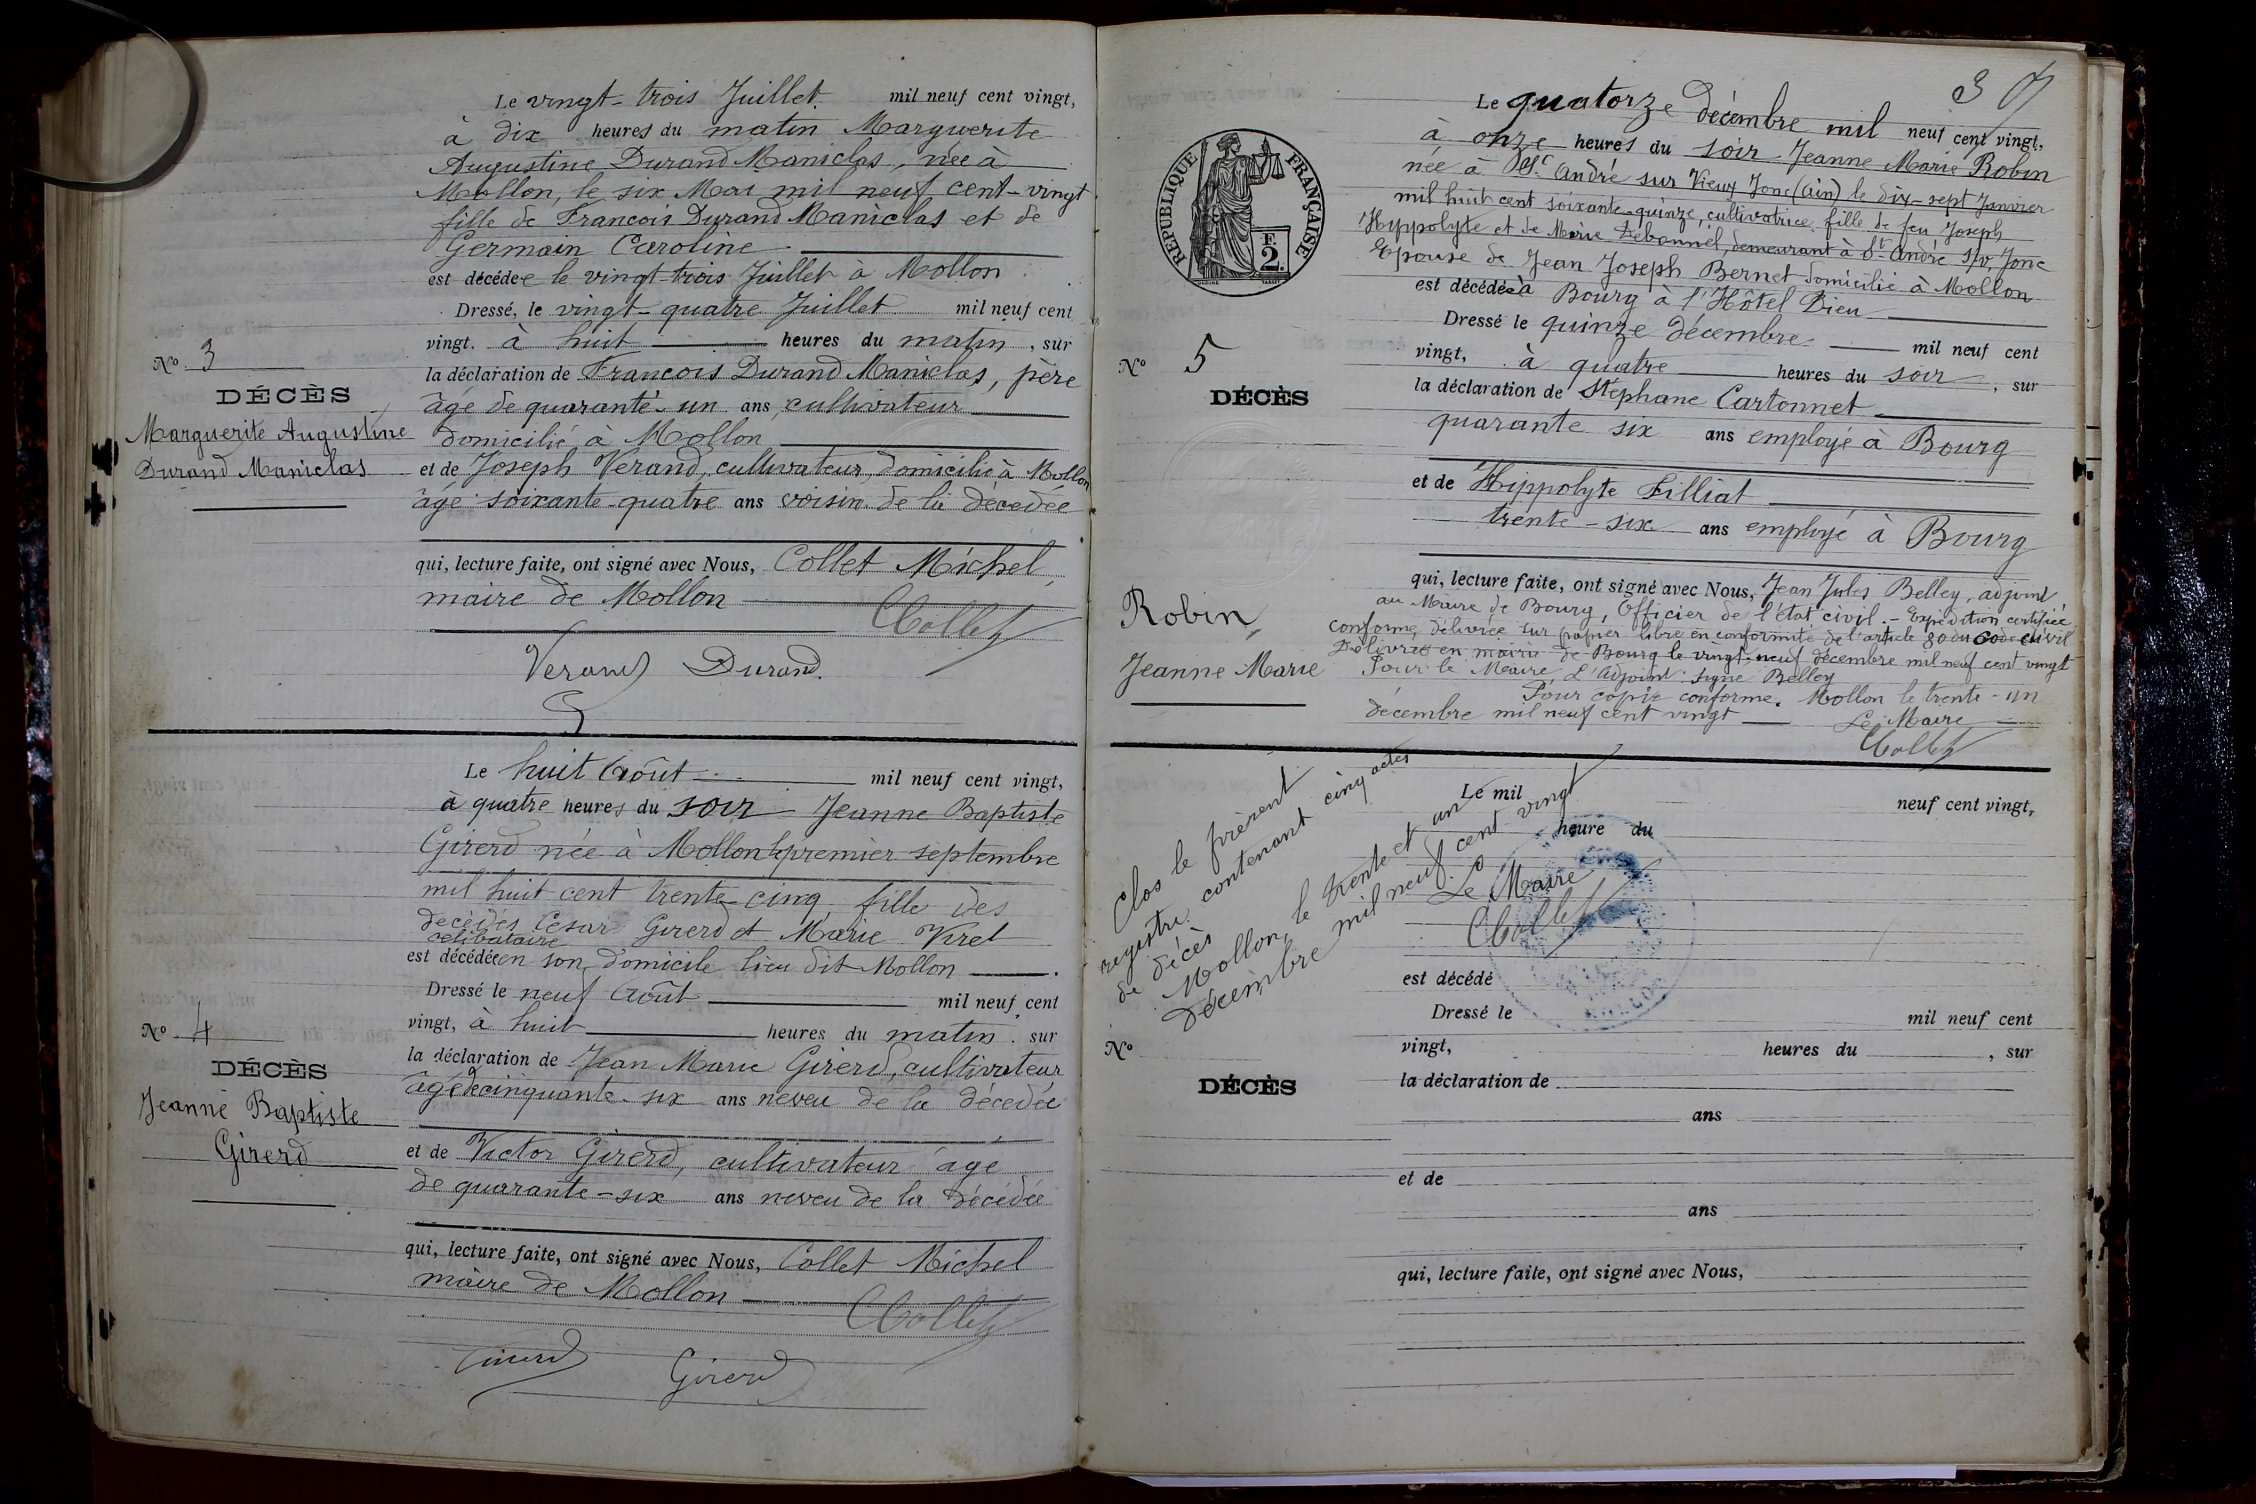 Le vingt-trois Juillet mil neuf cent vingt,
à dix heures du matin Marguerite
Augustine Durand Maniclas, née à
Mollon, le six Mai mil neuf cent-vingt
fille de Francois Durand Maniclas et de
Germain Caroline
est décédée le vingt-trois Juillet à Mollon
Dressé, le vingt-quatre Juillet mil neuf cent
vingt. à huit heures du matin, sur
la déclaration de Francois Durand Maniclas, père
âgé de quarante-un ans cultivateur
domicilié à Mollon
et de Joseph Verand, cultivateur, domicilié à Mollon
âgé soixante-quatre ans voisin de la décédée
qui, lecture faite, ont signé avec Nous, Collet Michel
maire de Mollon
Collet
Verand Durand
No 3
DÉCÈS
Marguerite Augustine
Durand Maniclas
Le huit Août mil neuf cent vingt,
à quatre heures du soir Jeanne Baptiste
Girerd née à Mollon le premier septembre
mil huit cent trente-cinq fille des
décédés César Girerd et Marie Virel
célibataire
est décédée en son domicile lieu dit Mollon
Dressé le neuf Août mil neuf cent
vingt, à huit heures du matin, sur
la déclaration de Jean Marie Girerd, cultivateur
âgé de cinquante-six ans neveu de la décédée
et de Victor Girerd, cultivateur âgé
de quarante-six ans neveu de la décédée
qui, lecture faite, ont signé avec Nous, Collet Michel
maire de Mollon
Collet
Girerd Girerd
No 4
DÉCÈS
Jeanne Baptiste
Girerd
3
RÉPUBLIQUE FRANÇAISE
F.
2.
Le quatorze décembre mil neuf cent vingt,
à onze heures du soir Jeanne Marie Robin
née à St André sur Vieux Jonc (Ain) le dix-sept Janvier
mil huit cent soixante-quinze, cultivatrice, fille de feu Joseph
Hyppolyte et de Marie Debonnel, demeurant à St André s/v Jonc
Epouse de Jean Joseph Bernet domicilié à Mollon
est décédée à Bourg à l'Hôtel Dieu
Dressé le quinze décembre mil neuf cent
vingt, à quatre heures du soir, sur
la déclaration de Stéphane Cartonnet
quarante six ans employé à Bourg
et de Hippolyte Filliat
trente-six ans employé à Bourg
qui, lecture faite, ont signé avec Nous, Jean Jules Belley, adjoint
au Maire de Bourg, Officier de l'état civil. - Expédition certifiée
conforme, délivrée sur papier libre en conformité de l'article 80 du Code civil
Délivrée en mairie de Bourg le vingt-neuf décembre mil neuf cent vingt
Pour le Maire, L'adjoint: signé Belley
Pour copie conforme. Mollon le trente-un
décembre mil neuf cent vingt
Le Maire
Collet
No 5
DÉCÈS
Robin,
Jeanne Marie
Clos le présent
registre contenant cinq actes
de décès
Mollon, le trente et un
Décembre mil neuf cent vingt
Le Maire
Collet
Le mil neuf cent vingt,
heure du
est décédé
Dressé le mil neuf cent
vingt, heures du , sur
la déclaration de
ans
et de
ans
qui, lecture faite, ont signé avec Nous,
No
DÉCÈS